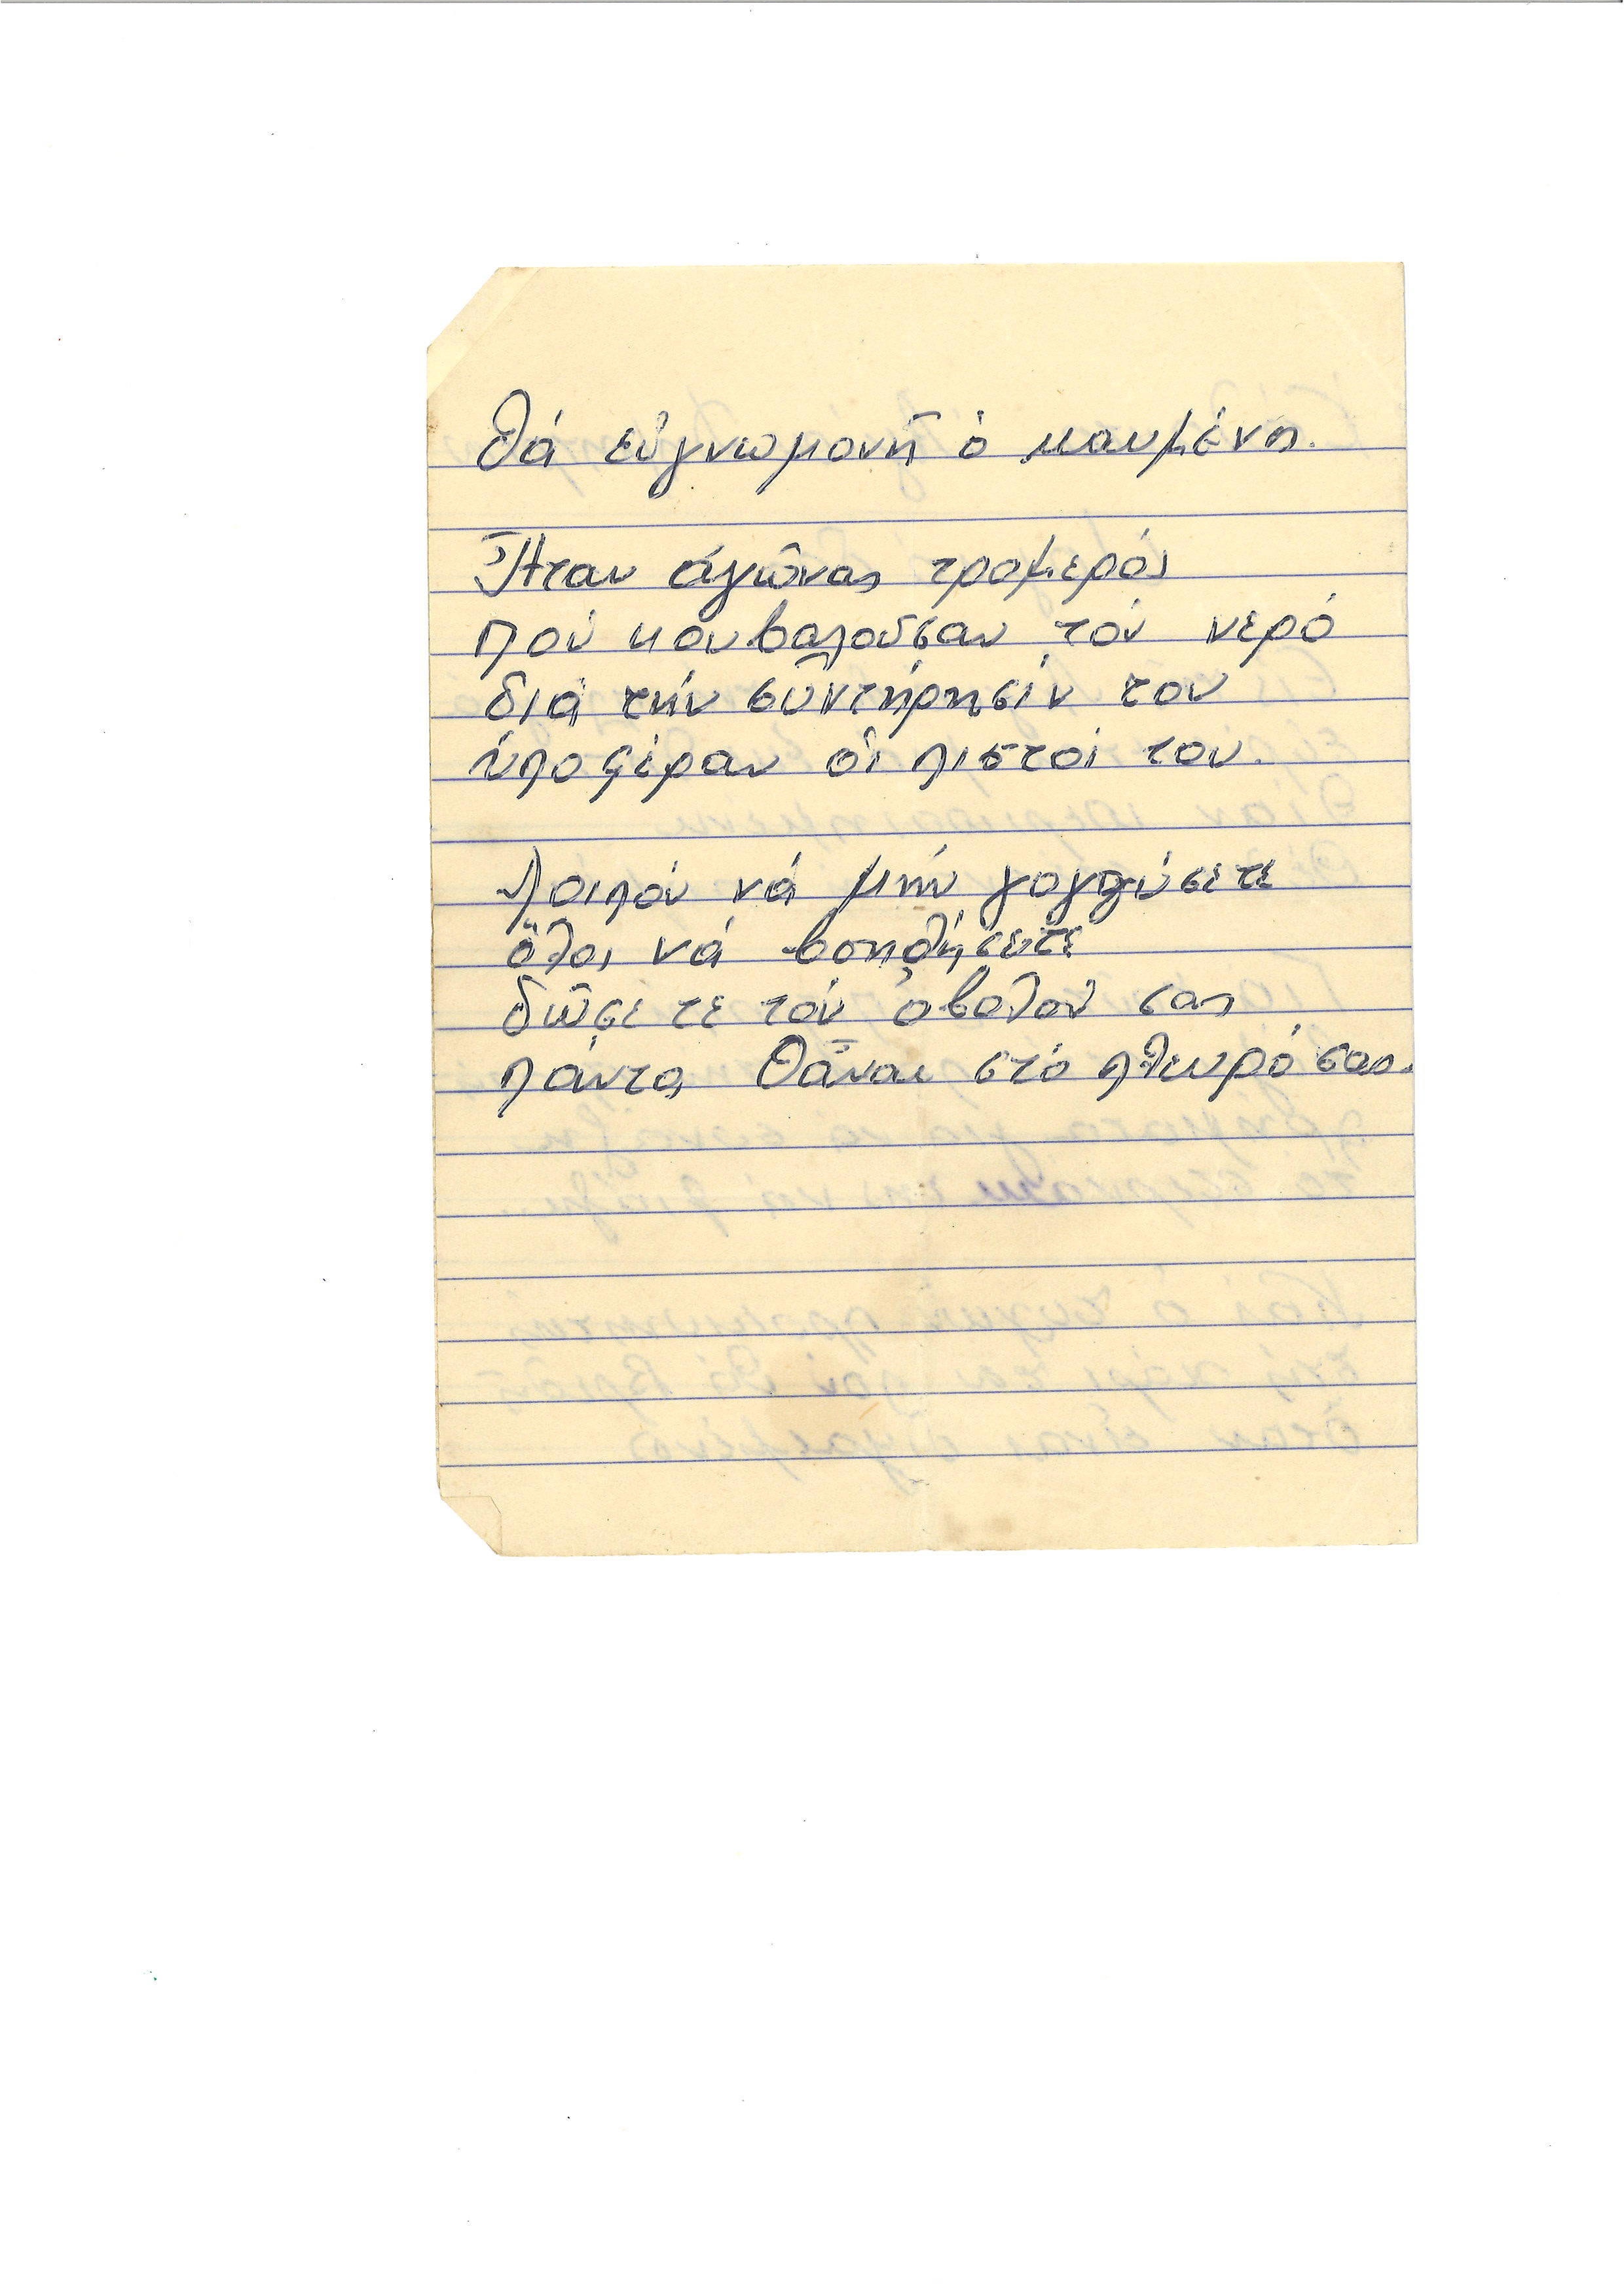 θά εὐγνωμονῆ ὁ καυμένης.
Ἦταν ἀγῶνας τρομερός
πού κουβαλοῦσαν τόν νερό
διά τήν συντήρησίν του
ὑποφέραν οἱ πιστοί του.
Λοιπόν νά μήν γογγύσετε
ὅλοι νά βοηθήσετε
δῶσετε τόν ὀβολόν σας
πάντα θἆναι στό πλευρό σας.